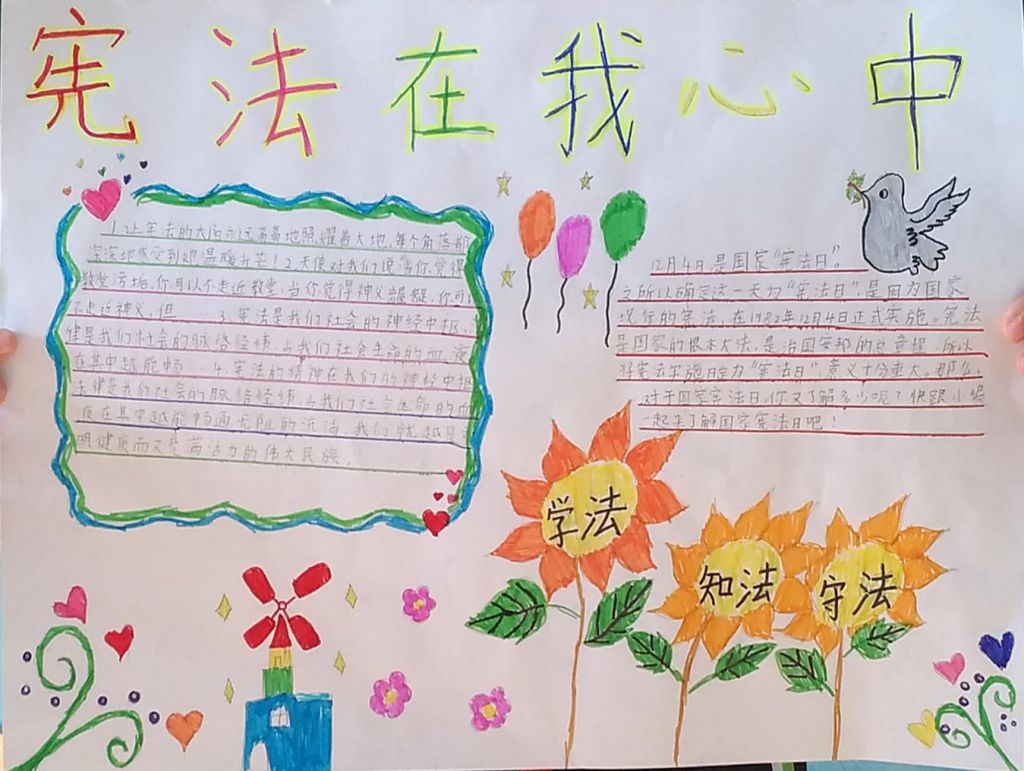 宪法在我心中
1.让宪法的太阳永远高高地照耀着大地,每个角落都
深深地感受到她温暖光芒!2.天使对我们说:当你觉得
教堂污垢,你可以不走近教堂;当你觉得神父龌龊,你可以
不走近神父,但……3.宪法是我们社会的神经中枢,
律是我们社会的脉络经纬,当我们社会生命的血液
在其中越能畅……4.宪法的精神在我们的神经中枢
法律是我们社会的脉络经纬,当我们社会生命的血
液在其中越能畅通无阻的流淌,我们就越是
明健康而又充满活力的伟大民族。
12月4日是国家“宪法日”。
之所以确定这一天为“宪法日”,是因为国家
现行的宪法,在1982年12月4日正式实施。宪法
是国家的根本大法,是治国安邦的总章程,所以
将宪法实施日定为“宪法日”,意义十分重大。那么,
对于国家宪法日,你又了解多少呢?快跟小编
一起来了解国家宪法日吧!
学法
知法
守法